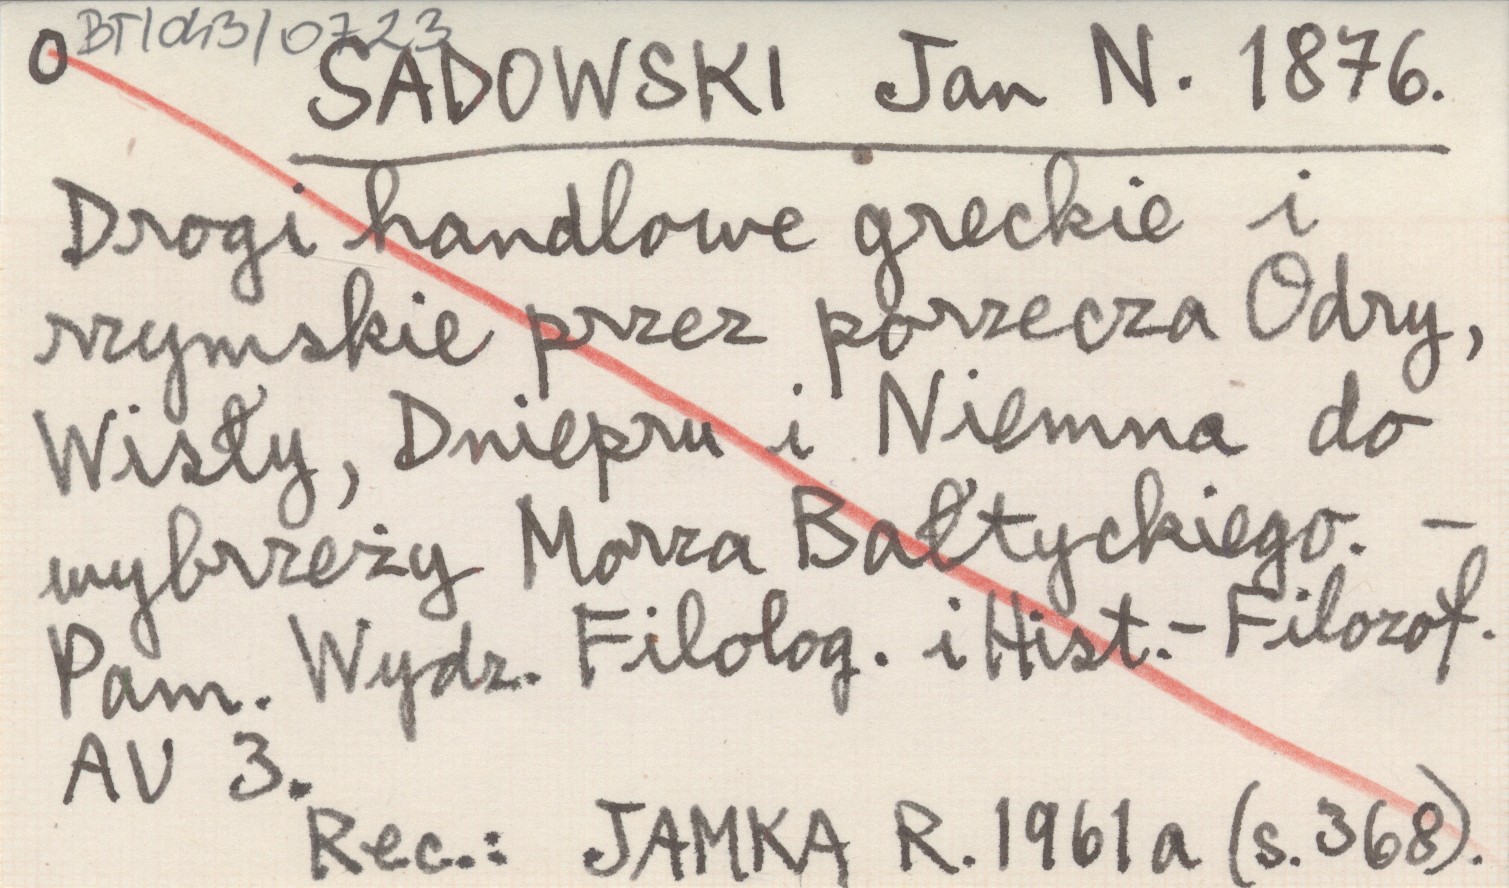 O BT/043/0723
SADOWSKI Jan N. 1876.
Drogi handlowe greckie i
rzymskie przez porzecza Odry,
Wisły, Dniepru i Niemna do
wybrzeży Morza Bałtyckiego. –
Pam. Wydz. Filolog. i Hist.-Filozof.
AU 3.
Rec.: JAMKA R. 1961a (s. 368).